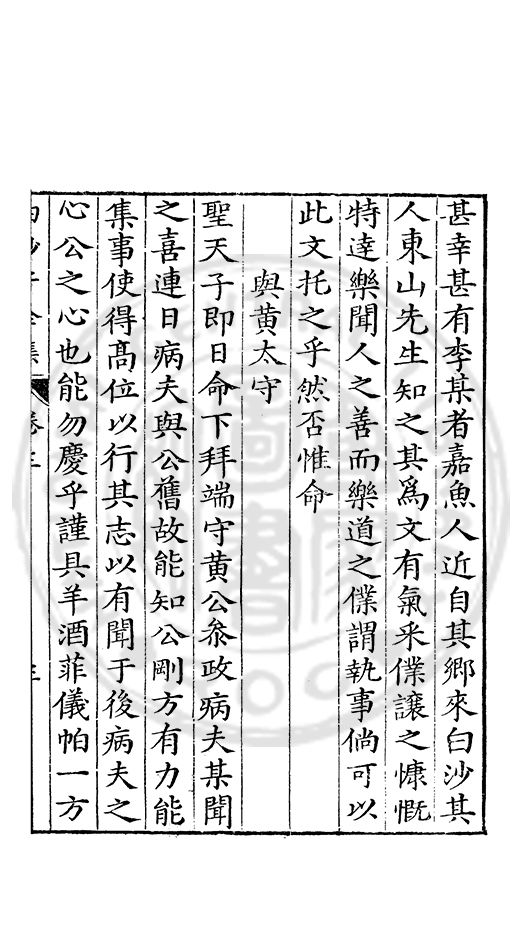 甚幸甚有李某者嘉魚人近自其鄉來白沙其
人東山先生知之其爲文有氣采僕讓之慷慨
特達樂聞人之善而樂道之僕謂執事倘可以
此文托之乎然否惟命
與黄太守
聖天子即日命下拜端守黄公叅政病夫某聞
之喜連日病夫與公舊故能知公剛方有力能
集事使得髙位以行其志以有聞于後病夫之
心公之心也能勿慶乎謹具羊酒菲儀帕一方